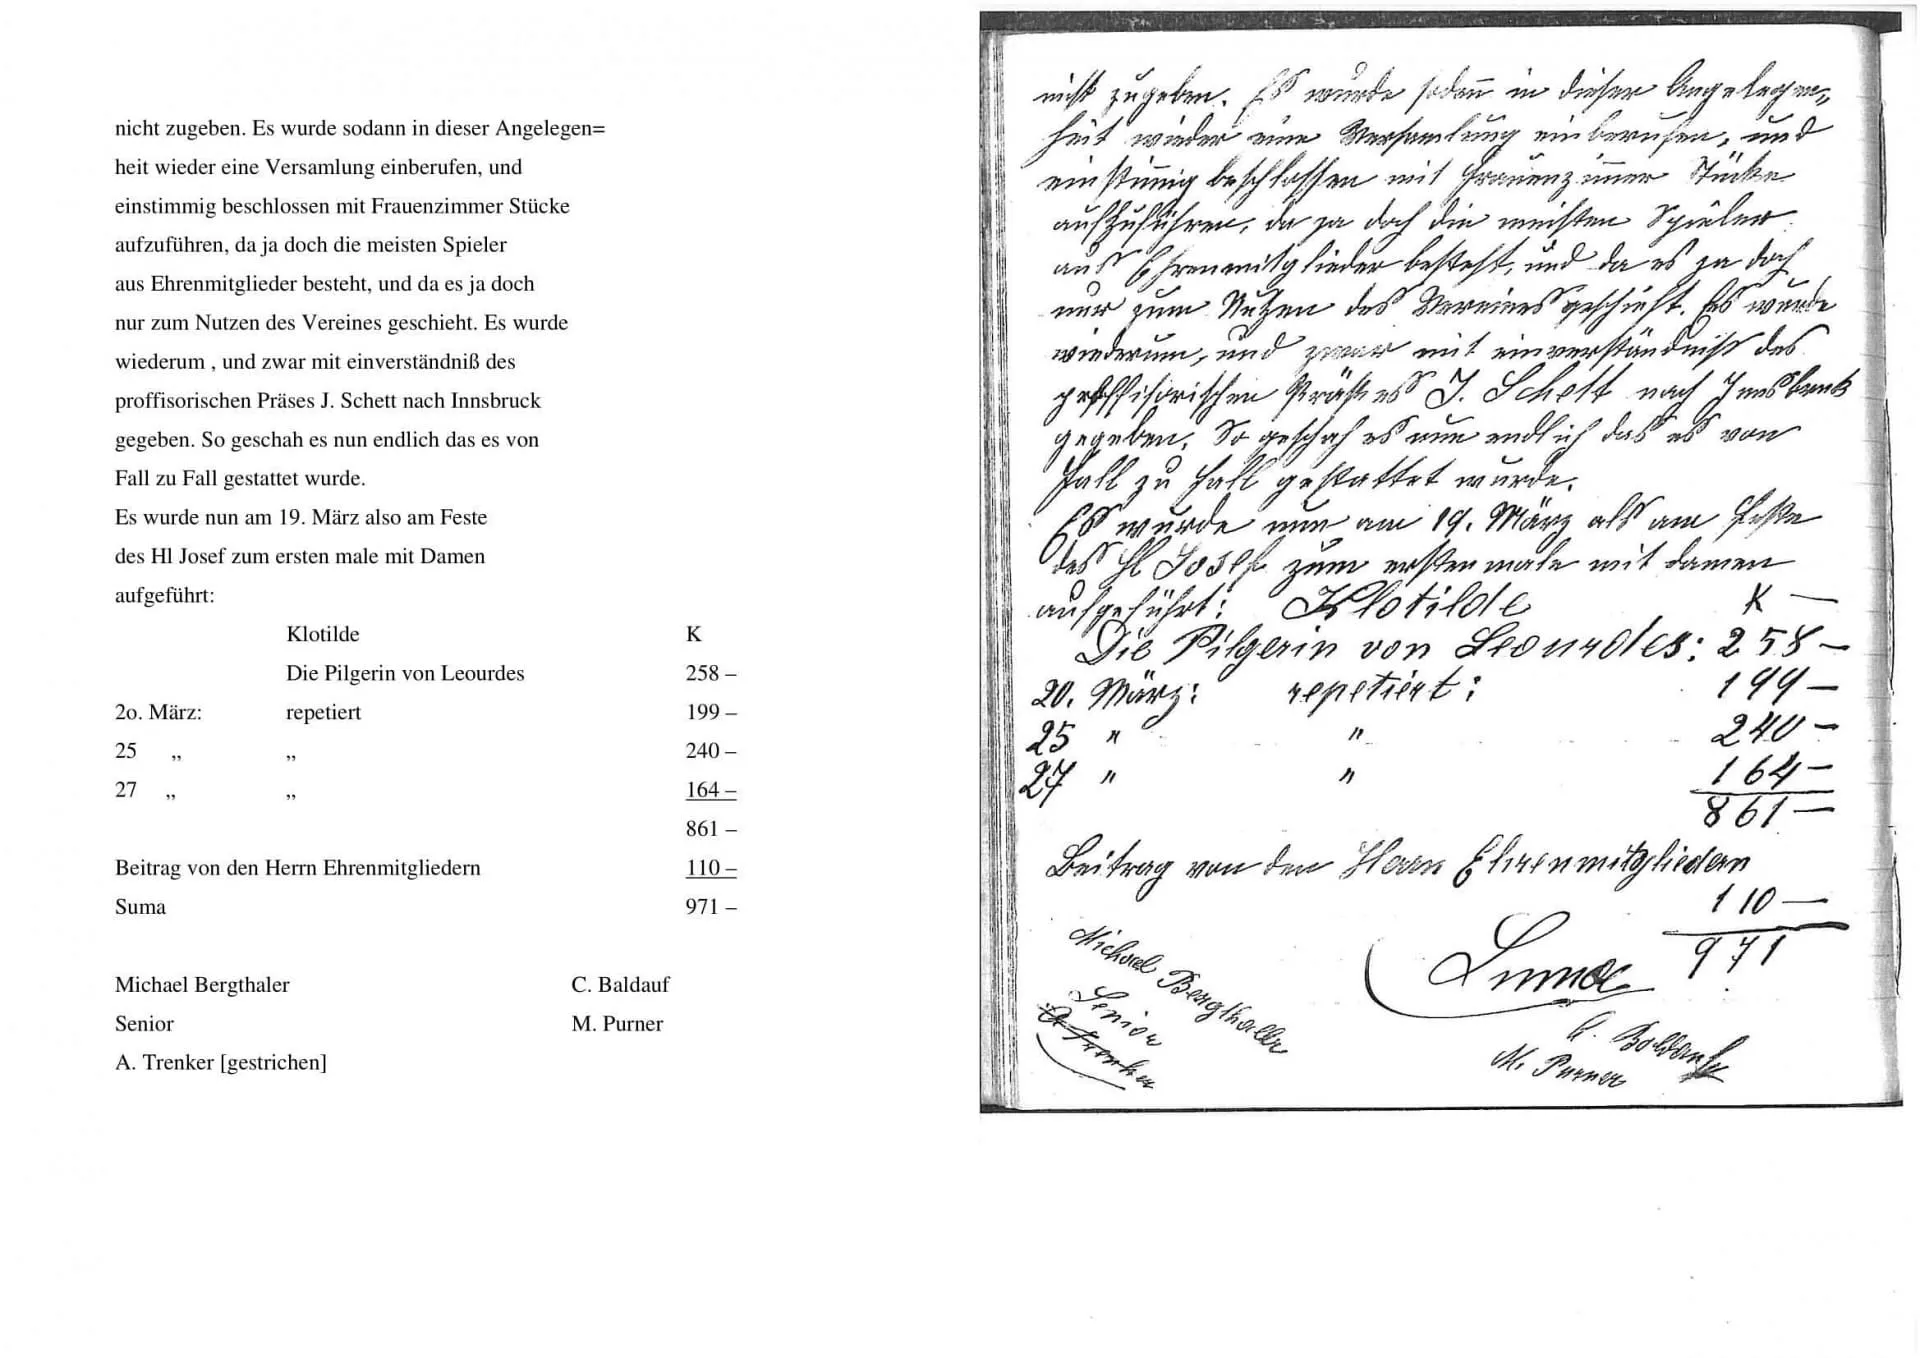 nicht zugeben. Es wurde sodann in dieser Angelegen=
heit wieder eine Versamlung einberufen, und
einstimmig beschlossen mit Frauenzimmer Stücke
aufzuführen, da ja doch die meisten Spieler
aus Ehrenmitglieder besteht, und da es ja doch
nur zum Nutzen des Vereines geschieht. Es wurde
wiederum , und zwar mit einverständniß des
proffisorischen Präses J. Schett nach Innsbruck
gegeben. So geschah es nun endlich das es von
Fall zu Fall gestattet wurde.
Es wurde nun am 19. März also am Feste
des Hl Josef zum ersten male mit Damen
aufgeführt:
Klotilde K
Die Pilgerin von Leourdes 258 –
2o. März: repetiert 199 –
25 „ „ 240 –
27 „ „ 164 –
861 –
Beitrag von den Herrn Ehrenmitgliedern 110 –
Suma 971 –
Michael Bergthaler C. Baldauf
Senior M. Purner
A. Trenker [gestrichen]
nicht zugeben. Es wurde sodann in dieser Angelegen=
heit wieder eine Versamlung einberufen, und
einstimmig beschlossen mit Frauenzimmer Stücke
aufzuführen, da ja doch die meisten Spieler
aus Ehrenmitglieder besteht, und da es ja doch
nur zum Nutzen des Vereines geschieht. Es wurde
wiederum, und zwar mit einverständniß des
proffisorischen Präses J. Schett nach Innsbruck
gegeben. So geschah es nun endlich das es von
Fall zu Fall gestattet wurde.
Es wurde nun am 19. März als am Feste
des Hl Josef zum erstenmale mit damen
aufgeführt: Klotilde K —
Die Pilgerin von Leourdes: 258 –
20. März: repetiert: 199 –
25 " " 240 –
27 " " 164 –
861 –
Beitrag von den Herrn Ehrenmitgliedern
110 –
Suma 971
Michael Bergthaler
Senior
A Trenker
C. Baldauf
M. Purner